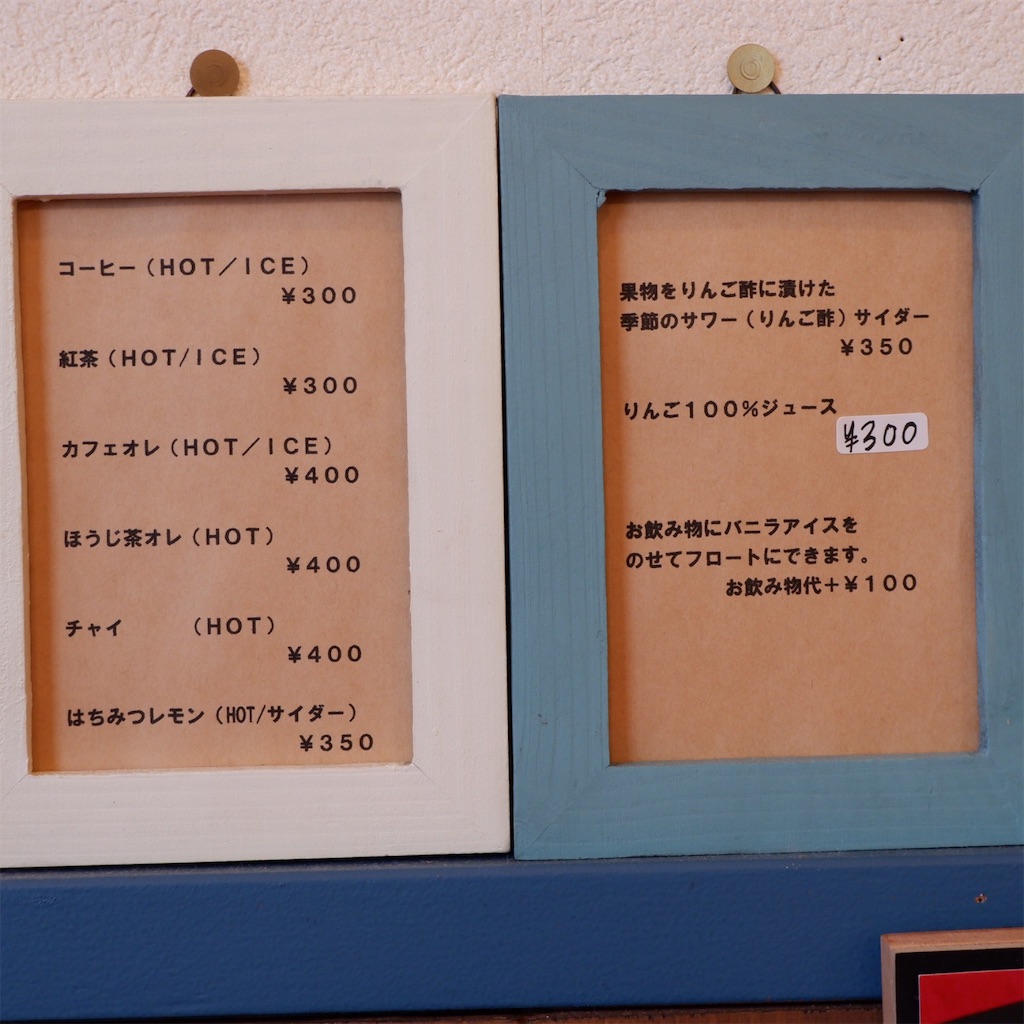 コーヒー（HOT／ICE）
¥300
紅茶（HOT/ICE）
¥300
カフェオレ（HOT／ICE）
¥400
ほうじ茶オレ（HOT）
¥400
チャイ　　　（HOT）
¥400
はちみつレモン（HOT/サイダー）
¥350
果物をりんご酢に漬けた
季節のサワー（りんご酢）サイダー
¥350
りんご100%ジュース
¥300
お飲み物にバニラアイスを
のせてフロートにできます。
お飲み物代＋¥100